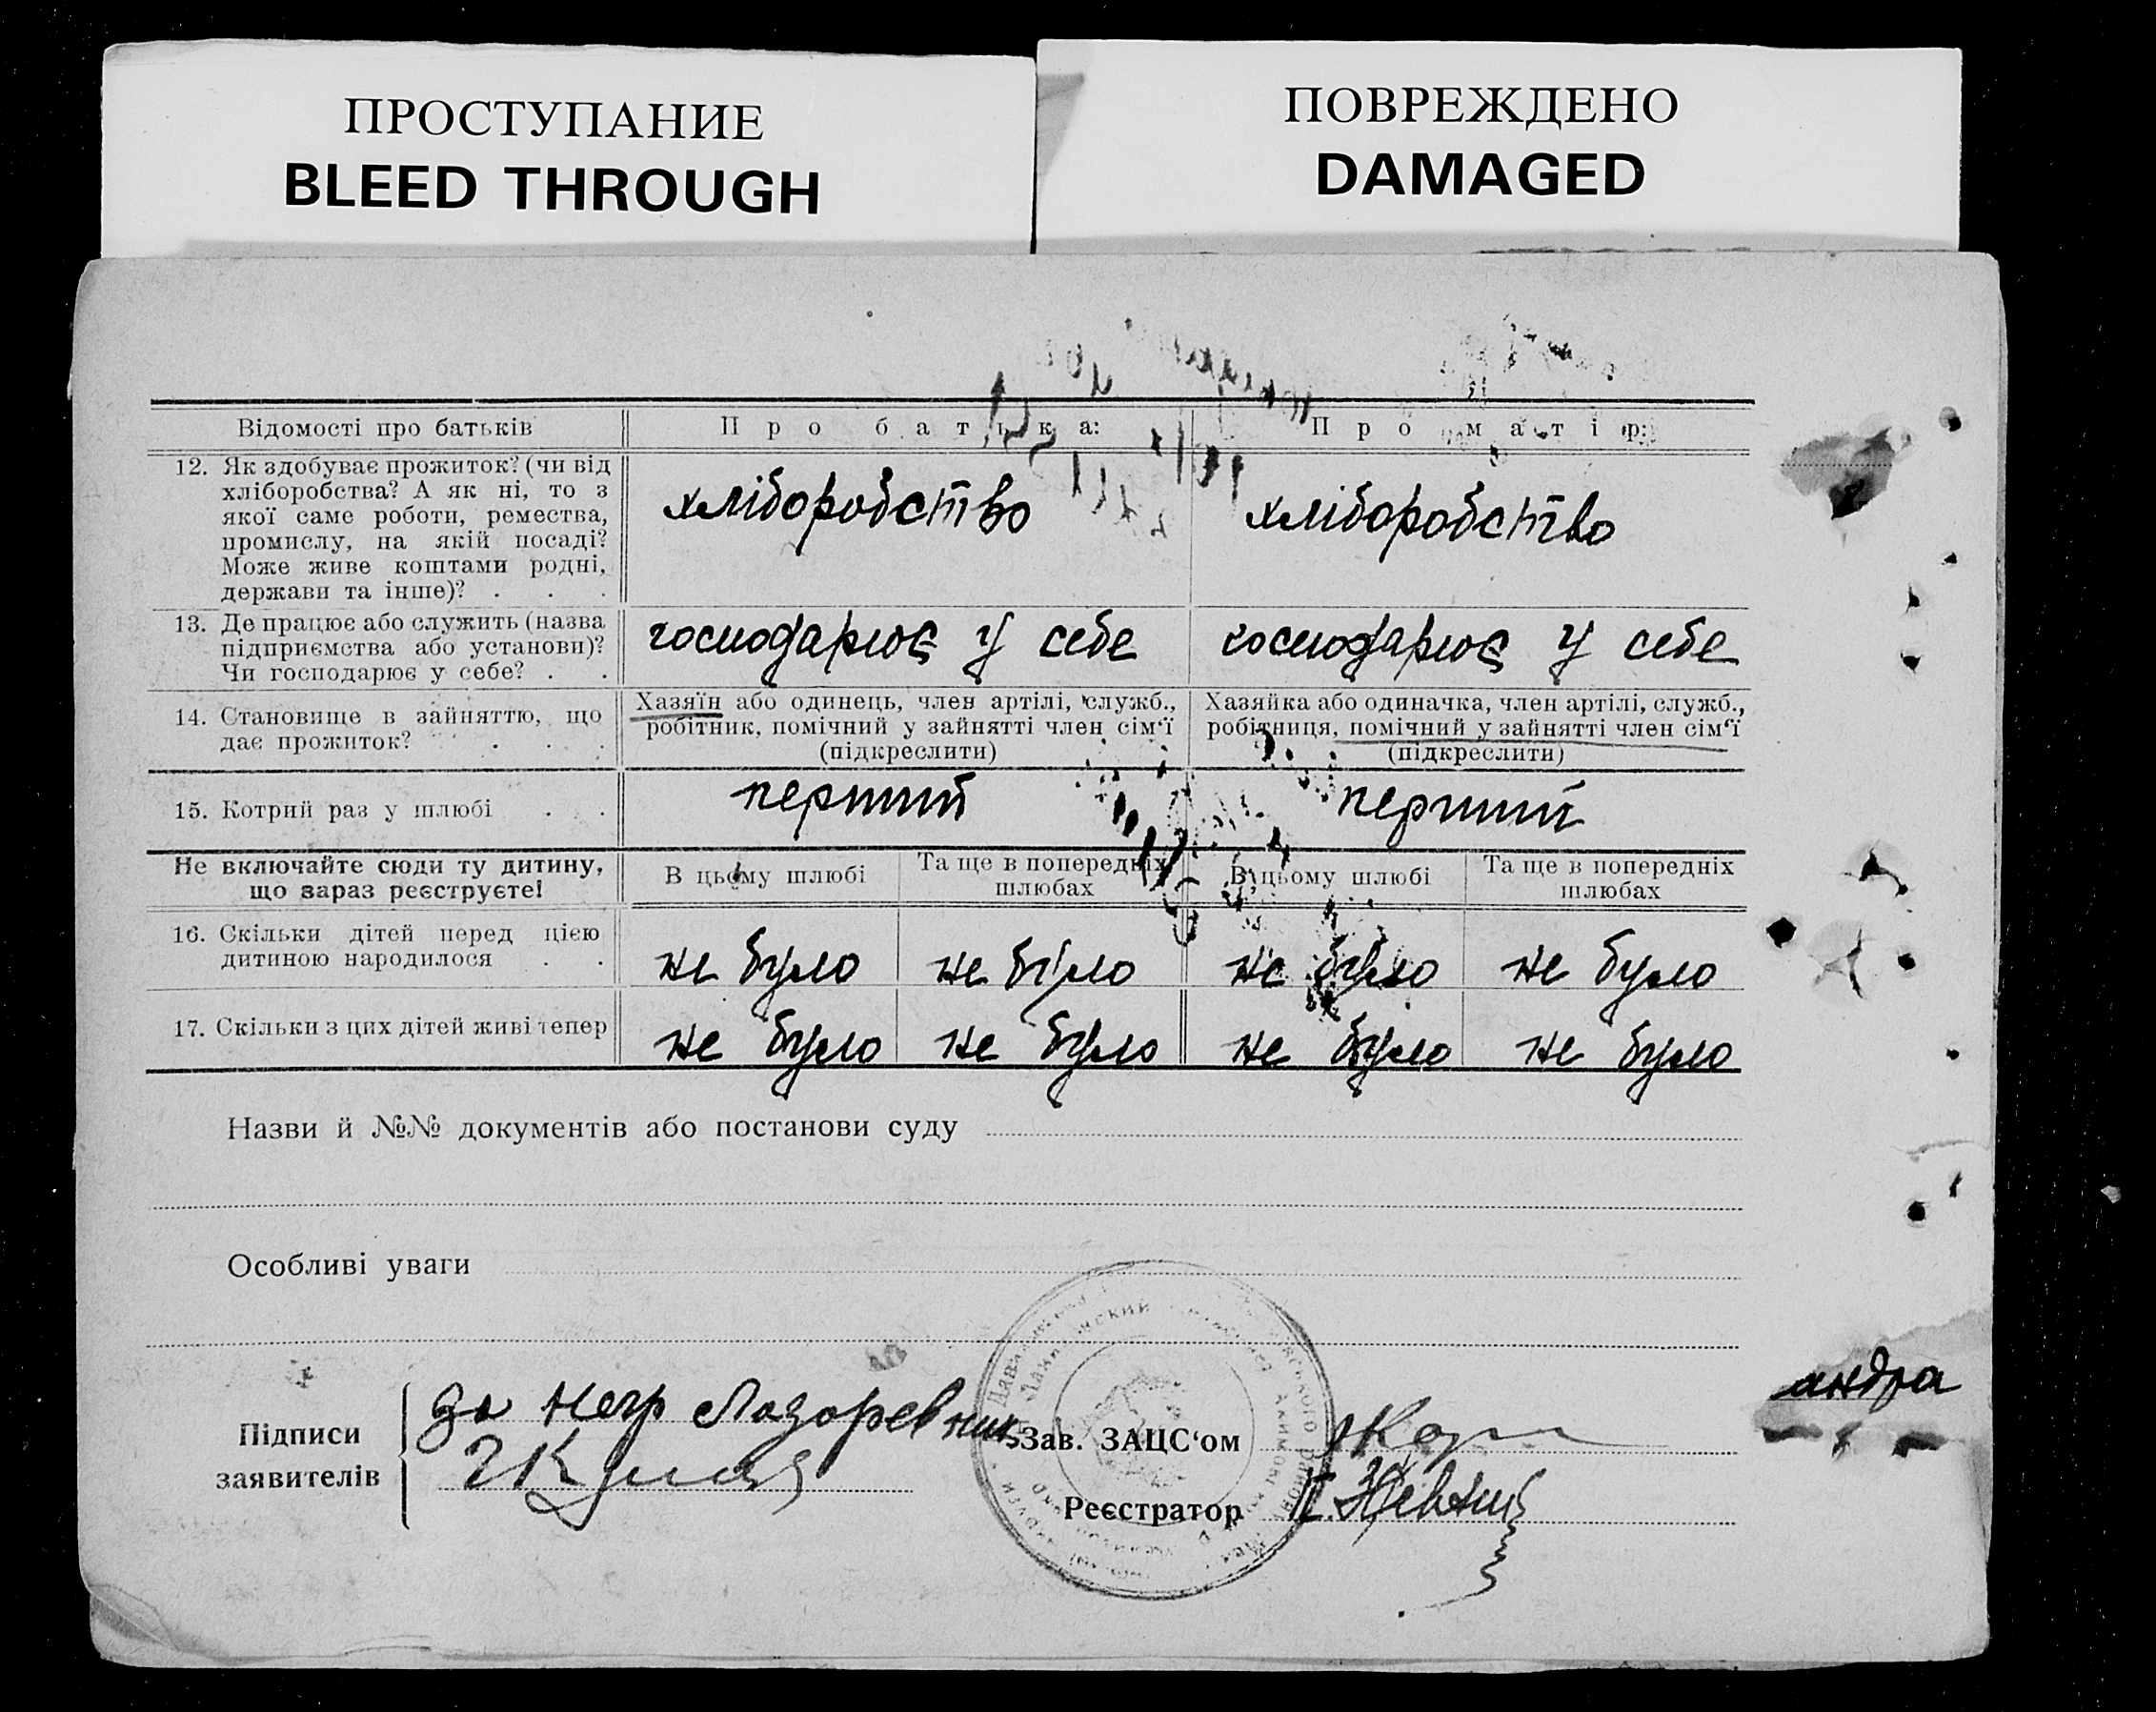 ПРОСТУПАНИЕ
BLEED THROUGH
ПОВРЕЖДЕНО
DAMAGED
Відомості про батьків
Про батька:
Про матір:
12. Як здобуває прожиток? (чи від
хліборобства? А як ні, то з
якої саме роботи, ремества,
промислу, на якій посаді?
Може живе коштами родні,
держави та інше)? . . .
хліборобство
хліборобство
13. Де працює або служить (назва
підприємства або установи)?
Чи господарює у себе? . .
господарює у себе
господарює у себе
14. Становище в зайняттю, що
дає прожиток? . . .
Хазяїн або одинець, член артілі, служб.,
робітник, помічний у зайнятті член сім‘ї
(підкреслити)
Хазяйка або одиначка, член артілі, служб.,
робітниця, помічний у зайнятті член сім‘ї
(підкреслити)
15. Котрий раз у шлюбі . . .
перший
перший
Не включайте сюди ту дитину,
що зараз реєструєте!
В цьому шлюбі
Та ще в попередніх
шлюбах
В цьому шлюбі
Та ще в попередніх
шлюбах
16. Скільки дітей перед цією
дитиною народилося . .
не було
не було
не було
не було
17. Скільки з цих дітей живі тепер
не було
не було
не було
не було
Назви й №№ документів або постанови суду
Особливі уваги
андра
Підписи
заявителів
за негр
Зав. ЗАЦС‘ом
Реєстратор